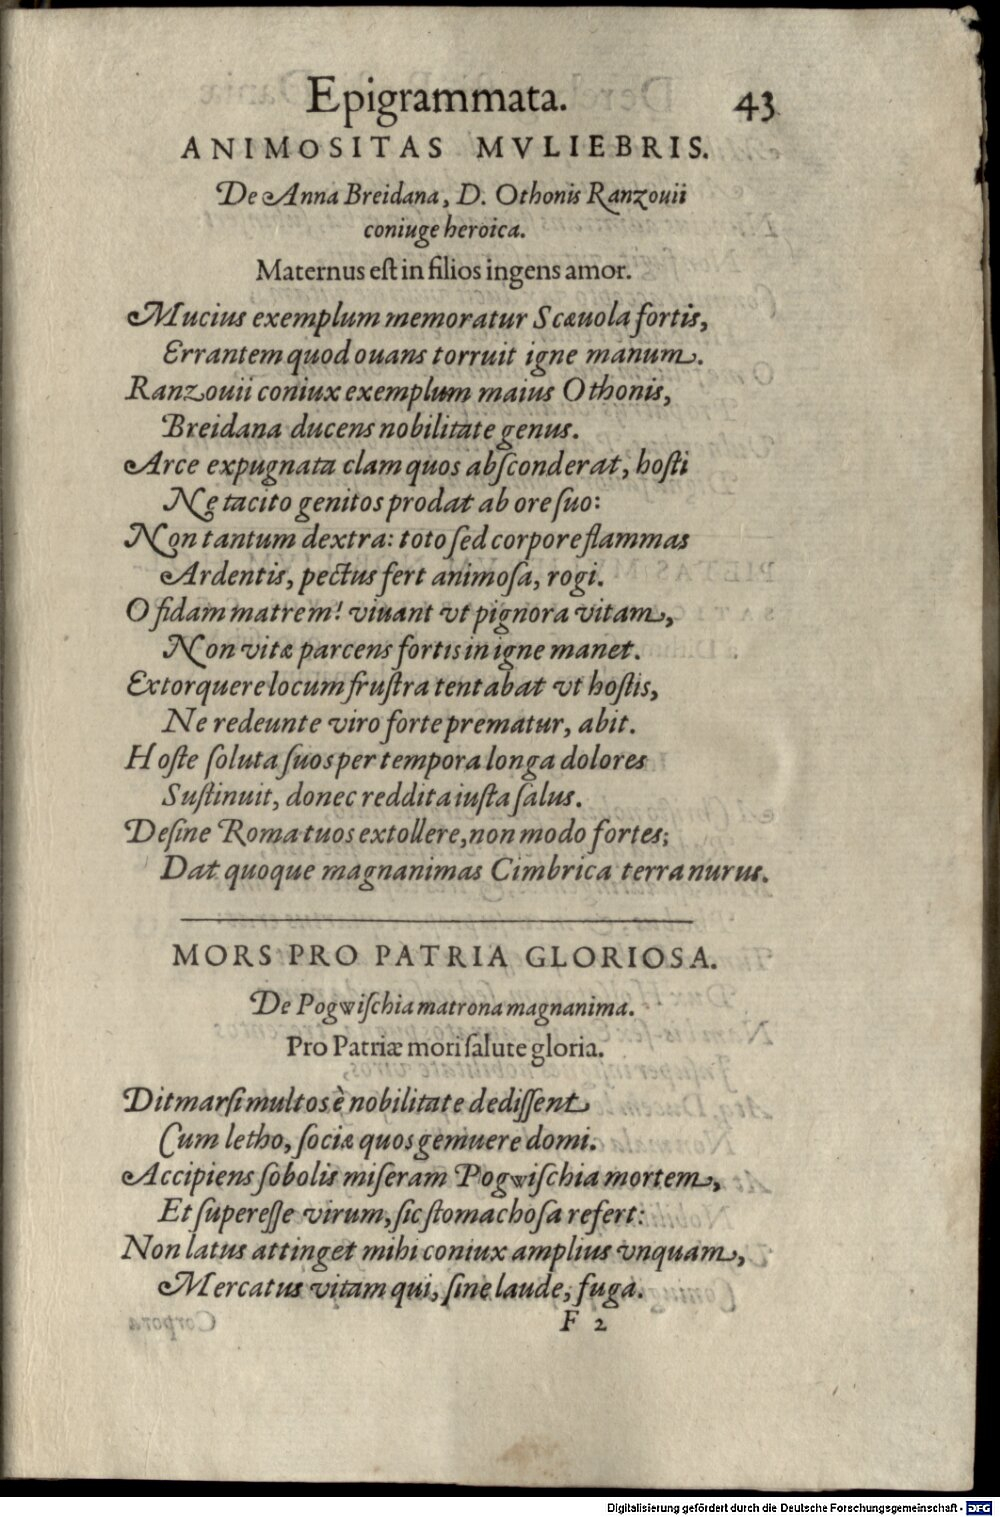 Epigrammata. 43
ANIMOSITAS MVLIEBRIS.
De Anna Breidana, D. Othonis Ranzouii
coniuge heroica.
Maternus est in filios ingens amor.
Mucius exemplum memoratur Scæuola fortis,
Errantem quod ouans torruit igne manum.
Ranzouii coniux exemplum maius Othonis,
Breidana ducens nobilitate genus.
Arce expugnata clam quos absconderat, hosti
Ne tacito genitos prodat ab ore suo:
Non tantum dextra: toto sed corpore flammas
Ardentis, pectus fert animosa, rogi.
O fidam matrem! viuant vt pignora vitam,
Non vitæ parcens fortis in igne manet.
Extorquere locum frustra tentabat vt hostis,
Ne redeunte viro forte prematur, abit.
Hoste soluta suos per tempora longa dolores
Sustinuit, donec reddita iusta salus.
Desine Roma tuos extollere, non modo fortes;
Dat quoque magnanimas Cimbrica terra nurus.
MORS PRO PATRIA GLORIOSA.
De Pogwischia matrona magnanima.
Pro Patriæ mori salute gloria.
Ditmarsi multos è nobilitate dedissent
Cum letho, sociæ quos gemuere domi.
Accipiens sobolis miseram Pogwischia mortem,
Et superesse virum, sic stomachosa refert:
Non latus attinget mihi coniux amplius vnquam,
Mercatus vitam qui, sine laude, fuga.
F 2
Digitalisierung gefördert durch die Deutsche Forschungsgemeinschaft - DFG